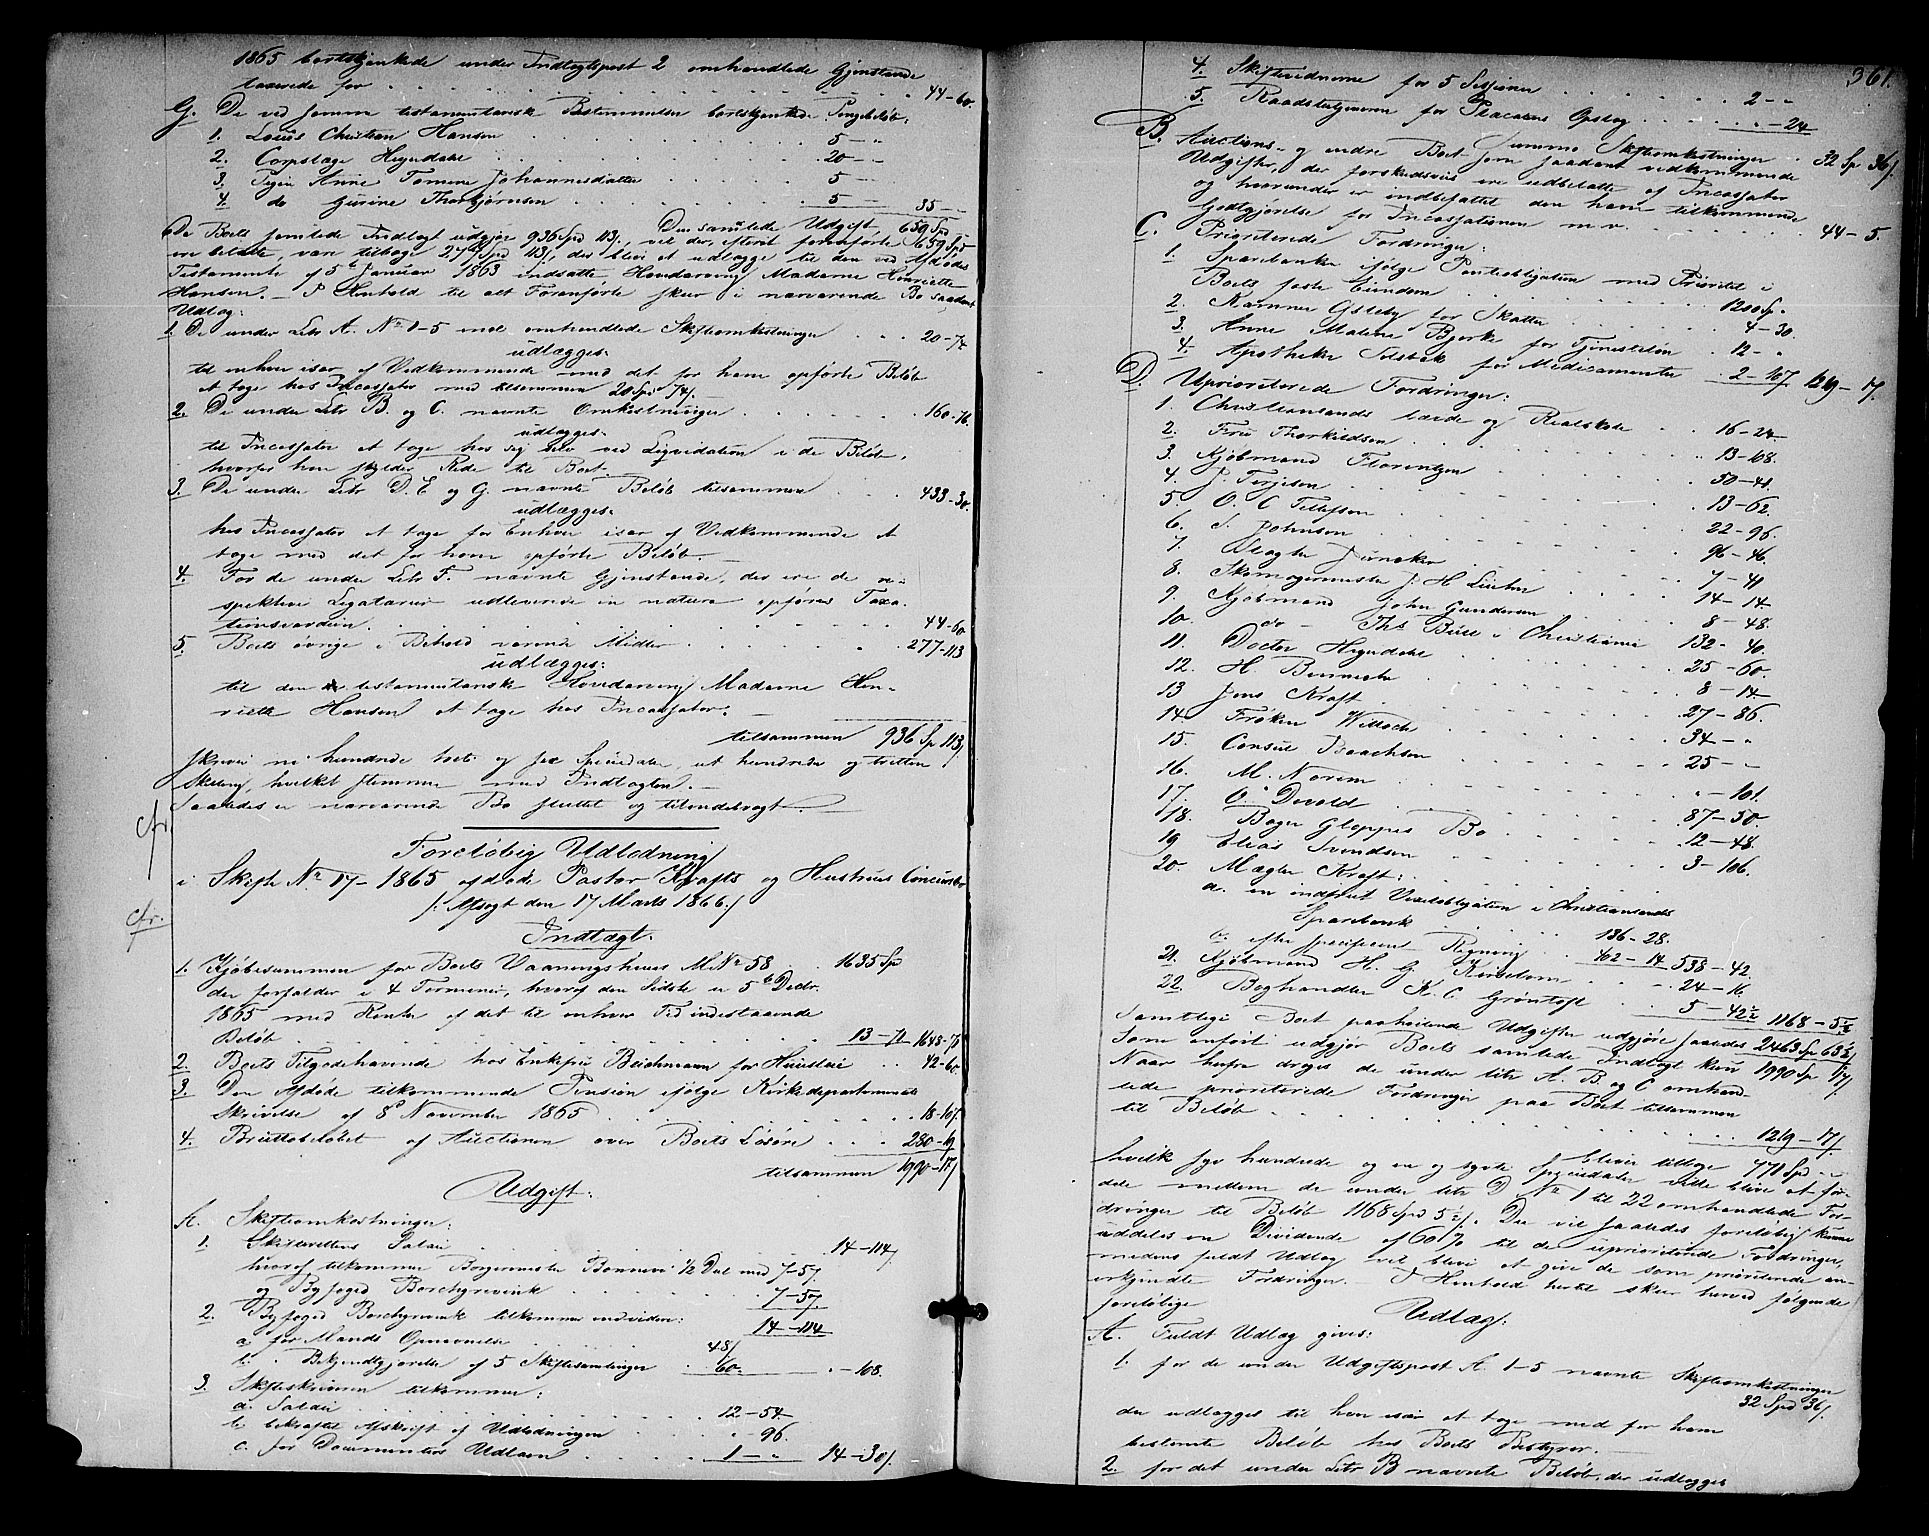 1865 bortskjænkede under Indtægtspost 2 omhandlede Gjenstande
taxerede for . . . 44-60.
G. De ved samme testamentariske Bestemmelser bortskjænkede Pengebeløb:
1. Louis Christian Hansen . . . 5 - "
2. Corpslæge Heyerdahl . . . 20 - -
3. Pigen Anne Tomine Johannesdatter . . . 5 -
4. do Gurine Thorbjørnsen . . . 5 - 35 - -
Den samlede Udgift, 659 Spd
Da Boets samlede Indtægt udgjør 936 Spd 113 s, vil der, efterat foranførte 659 Spd
ere betalte, være tilbage 277 Spd 113 s, der blev at udlægge til den ved Afdødes
Testamente af 5te Januar 1863 indsatte Hovedarving Madame Henriette
Hansen. - I Henhold til alt Foranførte skeer i nærværende Bo saadant
Udlæg:
1. De under Litr A. No 1-5 incl omhandlede Skifteomkostninger . . . 20-74
udlægges.
til enhver især af Vedkommende med det for ham opførte Beløb
at tage hos Incassator med tilsammen 20 Sp 74 s.
2. De under Litr B. og C. nævnte Omkostninger . . . 160-76.
udlægges.
til Incassator at tage hos sig selv ved Liqvidation i de Beløb,
hvorfor han skylder Rede til Boet.
3. De under Litr D. E og G. nævnte Beløb tilsammen . . . 433-30.
udlægges.
hos Incassator at tage for Enhver især af Vedkommende at
tage med det for ham opførte Beløb.
4. For de under Litr F. nævnte Gjenstande, der ere de re-
spektive Legatarier udleverede in natura opføres Taxa-
tionsværdien . . . 44-60
5. Boets øvrige i Behold værende Midler . . . 277-113
udlægges:
til den testamentariske Hovedarving Madame Hen-
riette Hansen at tage hos Incassator.
tilsammen 936 Sp 113 s.
skriver ni hundrede tret. og sex Speciedaler, et hundrede og tretten
Skilling, hvilket stemmer med Indtægten.
Saaledes er nærværende Bo sluttet og tilendebragt.
Foreløbig Udlodning
i Skifte No 17 - 1865 afdøde Pastor Krafts og Hustrues Concursbo
/: Afsagt den 17 Marts 1866 :/
Indtægt.
1. Kjøbesummen for Boets Vaaningshuus M No 58 . . 1635 Sp
der forfalder i 4 Terminer, hvoraf den Sidste er 5te Decbr.
1865 med Renter af det til enhver Tid indestaaende
Beløb . . . 13-71 1648-71
2. Boets Tilgodehavende hos Enkefru Beichmann for Huusleie . . 42-60.
3. Den Afdøde tilkommende Pension ifølge Kirkedepartementets
Skrivelse af 8de November 1865 . . . 18-107.
4. Bruttobeløbet af Auctionen over Boets Løsøre . . . 280-19
tilsammen 1990-17 s
Udgift:
A. Skifteomkostninger:
1. Skifterettens Salair . . . 14-114 s
hvoraf tilkommer Borgermester Bonnevie 1/2 Del med 7-57
og Byfoged Borchgrevink . . . 7-57.
14-114
2. Byfoged Borchgrevink tilkommer endvidere:
a. for Mands Opnævnelse . . . 48 s
b. " Bekjendtgjørelse af 5 Skiftesamlinger . 60. " -108.
3. Skifteskriveren tilkommer:
a. Salair . . . 12-54.
b. bekræftet Afskrift af Udlodningen . . . " -96.
c. for Documenters Udlaan . . . 1 - " 14-30 s.
361.
4. Skiftevidnerne for 5 Sessioner . . . 2 - "
5. Raadstutjeneren for Placaters Opslag . . . " -24
Summa Skifteomkostninger . 32 Sp 36 s
B. Auctions- og andre Boet som saadant vedkommende
Udgifter, der forskudsviis ere udbetalte af Incassator
og hvorunder er indbefattet den ham tilkommende
Godtgjørelse for Incassationen m.v. . . . 44-5.
C. Prioriterede Fordringer:
1. Sparebanken ifølge Pantobligation med Prioritet i
Boets faste Eiendom . . . 1200 Sp.
2. Kæmner Gsleby for Skatter . . . 4-30.
3. Anne Malene Bjerke for Tjenesteløn . 12 - "
4. Apotheker for Medicamenter . 2-107 1219-17.
D. Uprioriterede Fordringer:
1. Christiansands lærde og Realskole . . 16-24
2. Fru Thorkildsen . . . 13-108.
3. Kjøbmand Florentzen . . . 50-41.
4. J. Terjesen . . . 13-62.
5. O. C Tellefsen . . . 22-96.
6. S. Johnson . . . 96-46.
7. Slagter Juncker . . . 7-41
8. Skomagermester J. H. . . . 14-14
9. Kjøbmand John Gundersen . . . 8-48.
10. do - Ths Büll i Christiania 132-40.
11. Doctor Heyerdahl . . . 25-60.
12. H. . . . 8-14
13 Jens Kraft . . . 27-86.
14. Frøken Willoch . . . 34 - "
15. Consul Isaachsen . . . 25 - -
16. M. Norem . . . " -101.
17. O. Devold . . . 87-50.
18. Bager Gloppes Bo . . . 12-48
19 Elias Svendsen . . . 3-106.
20. Mægler Kraft: . . .
a. en indfriet Vexelobligation i Christiansands
Sparebank . . . 136-28.
b. efter specificeret Regning . . 402-14 538-42.
21. Kjøbmand H. G. . . . 24-16.
22. Boghandler K. C. Grøntoft . . . 5-42½ 1168-5½
Samtlige Boet paahvilende Udgifter udgjøre saaledes 2463 Sp 63½ s
Som anført udgjør Boets samlede Indtægt kun 1990 Sp 17 s.
Naar herfra drages de under litr A. B. og C omhand-
lede prioriterede Fordringer paa Boet tilsammen
til Beløb . . . 1219-17 s.
bliver tilbage 771 Spd - -
hvilke syv hundrede og en og syvti Speciedaler ville blive at for-
dele mellem de under litr D No 1 til 22 omhandlede For-
dringer til Beløb 1168 Spd 5½ s. Der vil saaledes foreløbig kunne
uddeles en Dividende af 60% til de uprioriterede Fordringer,
medens fuldt Udlæg vil blive at give de som prioriterede an-
erkjendte Fordringer. - I Henhold hertil skeer herved følgende
foreløbige
Udlæg:
A. Fuldt Udlæg gives:
1. for de under Udgiftspost A 1-5 nævnte Skifteomkostninger
32 Spd 36 s.
der udlægges til hver især at tage med for ham
bestemte Beløb hos Boets Bestyrer.
2. for det under Litr B nævnte Beløb, der udlægges